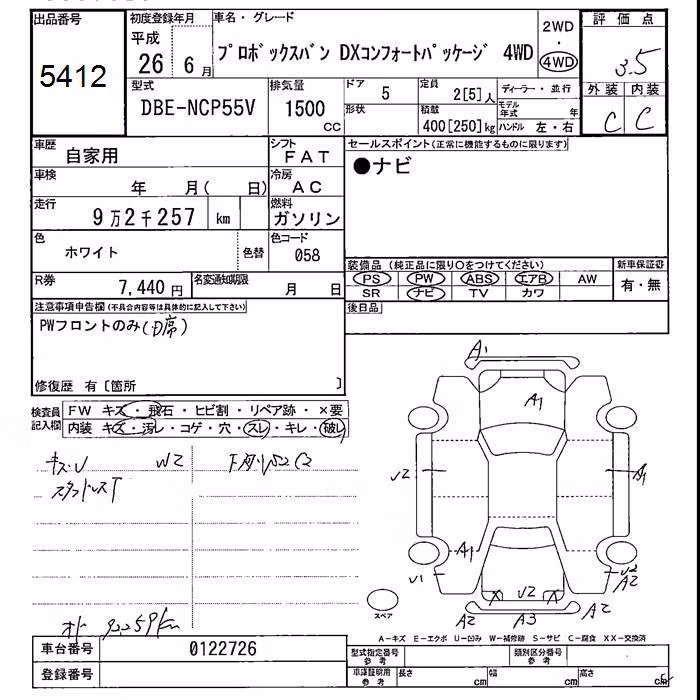 出品番号
5412
初度登録年月
平成
26 6月
車名・グレード
プロボックスバン DXコンフォートパッケージ 4WD
2WD
・
4WD
評価点
3.5
外装 内装
C C
型式
DBE-NCP55V
排気量
1500
CC
ドア
5
定員
2[5]人
形状
積載
400[250]kg
ディーラー・並行
モデル
年式 年
ハンドル 左・右
車歴
自家用
シフト
FAT
車検
年 月( 日)
冷房
AC
走行
9万2千257 km
燃料
ガソリン
色
ホワイト
色替
色コード
058
R券
7,440円
名変通知期限
月 日
セールスポイント(正常に機能するものに限ります)
●ナビ
装備品(純正品に限り○をつけてください)
PS PW ABS エアB AW
SR ナビ TV カワ
新車保証書
有・無
後日品
注意事項申告欄(不具合内容等は具体的に記入して下さい)
PWフロントのみ(D席)
修復歴 有〔箇所 〕
検査員
記入欄
FW キズ・飛石・ヒビ割・リペア跡・×要
内装 キズ・汚レ・コゲ・穴・スレ・キレ・破レ
キズU W2
下廻りS2C2
スタッドレスT
A1
A1
U2
A1
A1
U1
U2
A2
U2
A2 A3 A2
スペア
A-キズ E-エクボ U-凹み W-補修跡 S-サビ C-腐食 XX-交換済
車台番号
0122726
登録番号
型式指定番号
参考
類別区分番号
参考
車庫証明用
参考
長さ cm
幅 cm
高さ cm